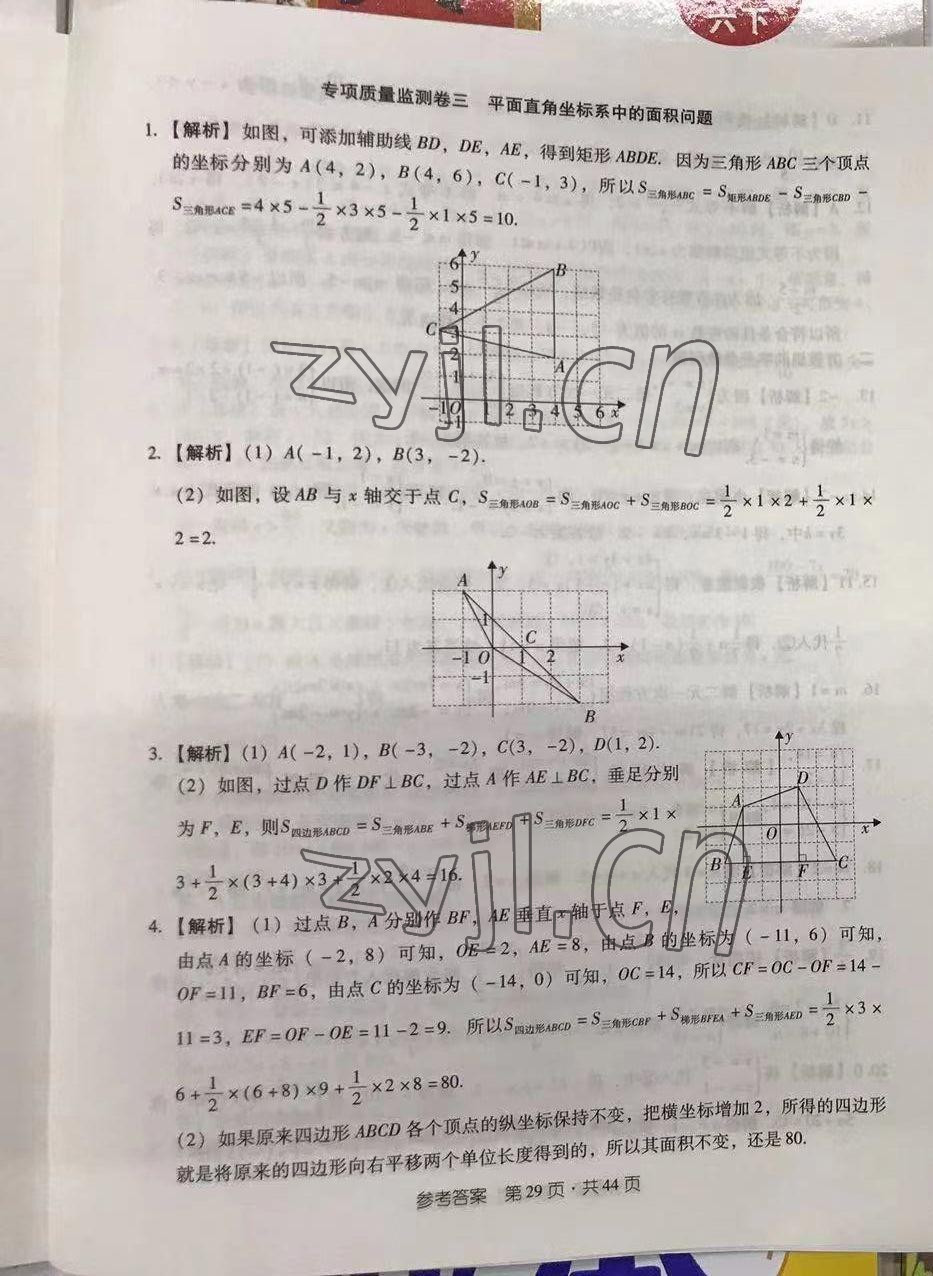 六下
专项质量监测卷三 平面直角坐标系中的面积问题
1. 【解析】如图，可添加辅助线 BD，DE，AE，得到矩形 ABDE. 因为三角形 ABC 三个顶点
的坐标分别为 A(4，2)，B(4，6)，C(-1，3)，所以S三角形ABC = S矩形ABDE - S三角形CBD -
S三角形ACE = 4×5 - 1/2 ×3×5 - 1/2 ×1×5 = 10.
y
6 B
5
4
C 3
2 A
1
-1 O 1 2 3 4 5 6 x
-1
zyjl.cn
2. 【解析】(1) A(-1，2)，B(3，-2).
(2) 如图，设 AB 与 x 轴交于点 C，S三角形AOB = S三角形AOC + S三角形BOC = 1/2 ×1×2 + 1/2 ×1×
2 = 2.
A y
1 C
-1 O 1 2 x
-1
B
3. 【解析】(1) A(-2，1)，B(-3，-2)，C(3，-2)，D(1，2).
(2) 如图，过点 D 作 DF⊥BC，过点 A 作 AE⊥BC，垂足分别
为 F，E，则S四边形ABCD = S三角形ABE + S梯形AEFD + S三角形DFC = 1/2 ×1×
3 + 1/2 ×(3+4)×3 + 1/2 ×2×4 = 16.
y
D
A
O x
B E F C
zyjl.cn
4. 【解析】(1) 过点 B，A 分别作 BF，AE 垂直 轴于点 F，E，
由点 A 的坐标（-2，8）可知，OE=2，AE=8，由点 B 的坐标为（-11，6）可知，
OF=11，BF=6，由点 C 的坐标为（-14，0）可知，OC=14，所以 CF=OC-OF=14-
11=3，EF=OF-OE=11-2=9. 所以S四边形ABCD = S三角形CBF + S梯形BFEA + S三角形AED = 1/2 ×3×
6 + 1/2 ×(6+8)×9 + 1/2 ×2×8 = 80.
(2) 如果原来四边形 ABCD 各个顶点的纵坐标保持不变，把横坐标增加 2，所得的四边形
就是将原来的四边形向右平移两个单位长度得到的，所以其面积不变，还是 80.
参考答案 第 29 页·共 44 页